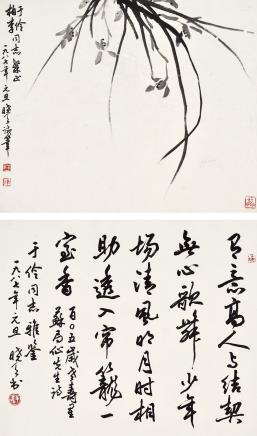 于伶同志粲正
柏李
一九八七年元旦晓天試筆
有意高人与结契
無心歌舞少年
场清风明月时相
助透入帘籠一
室香
百〇五岁老寿星
蘇局仙先生诗
于伶同志雅鉴
一九八七年元旦晓天书